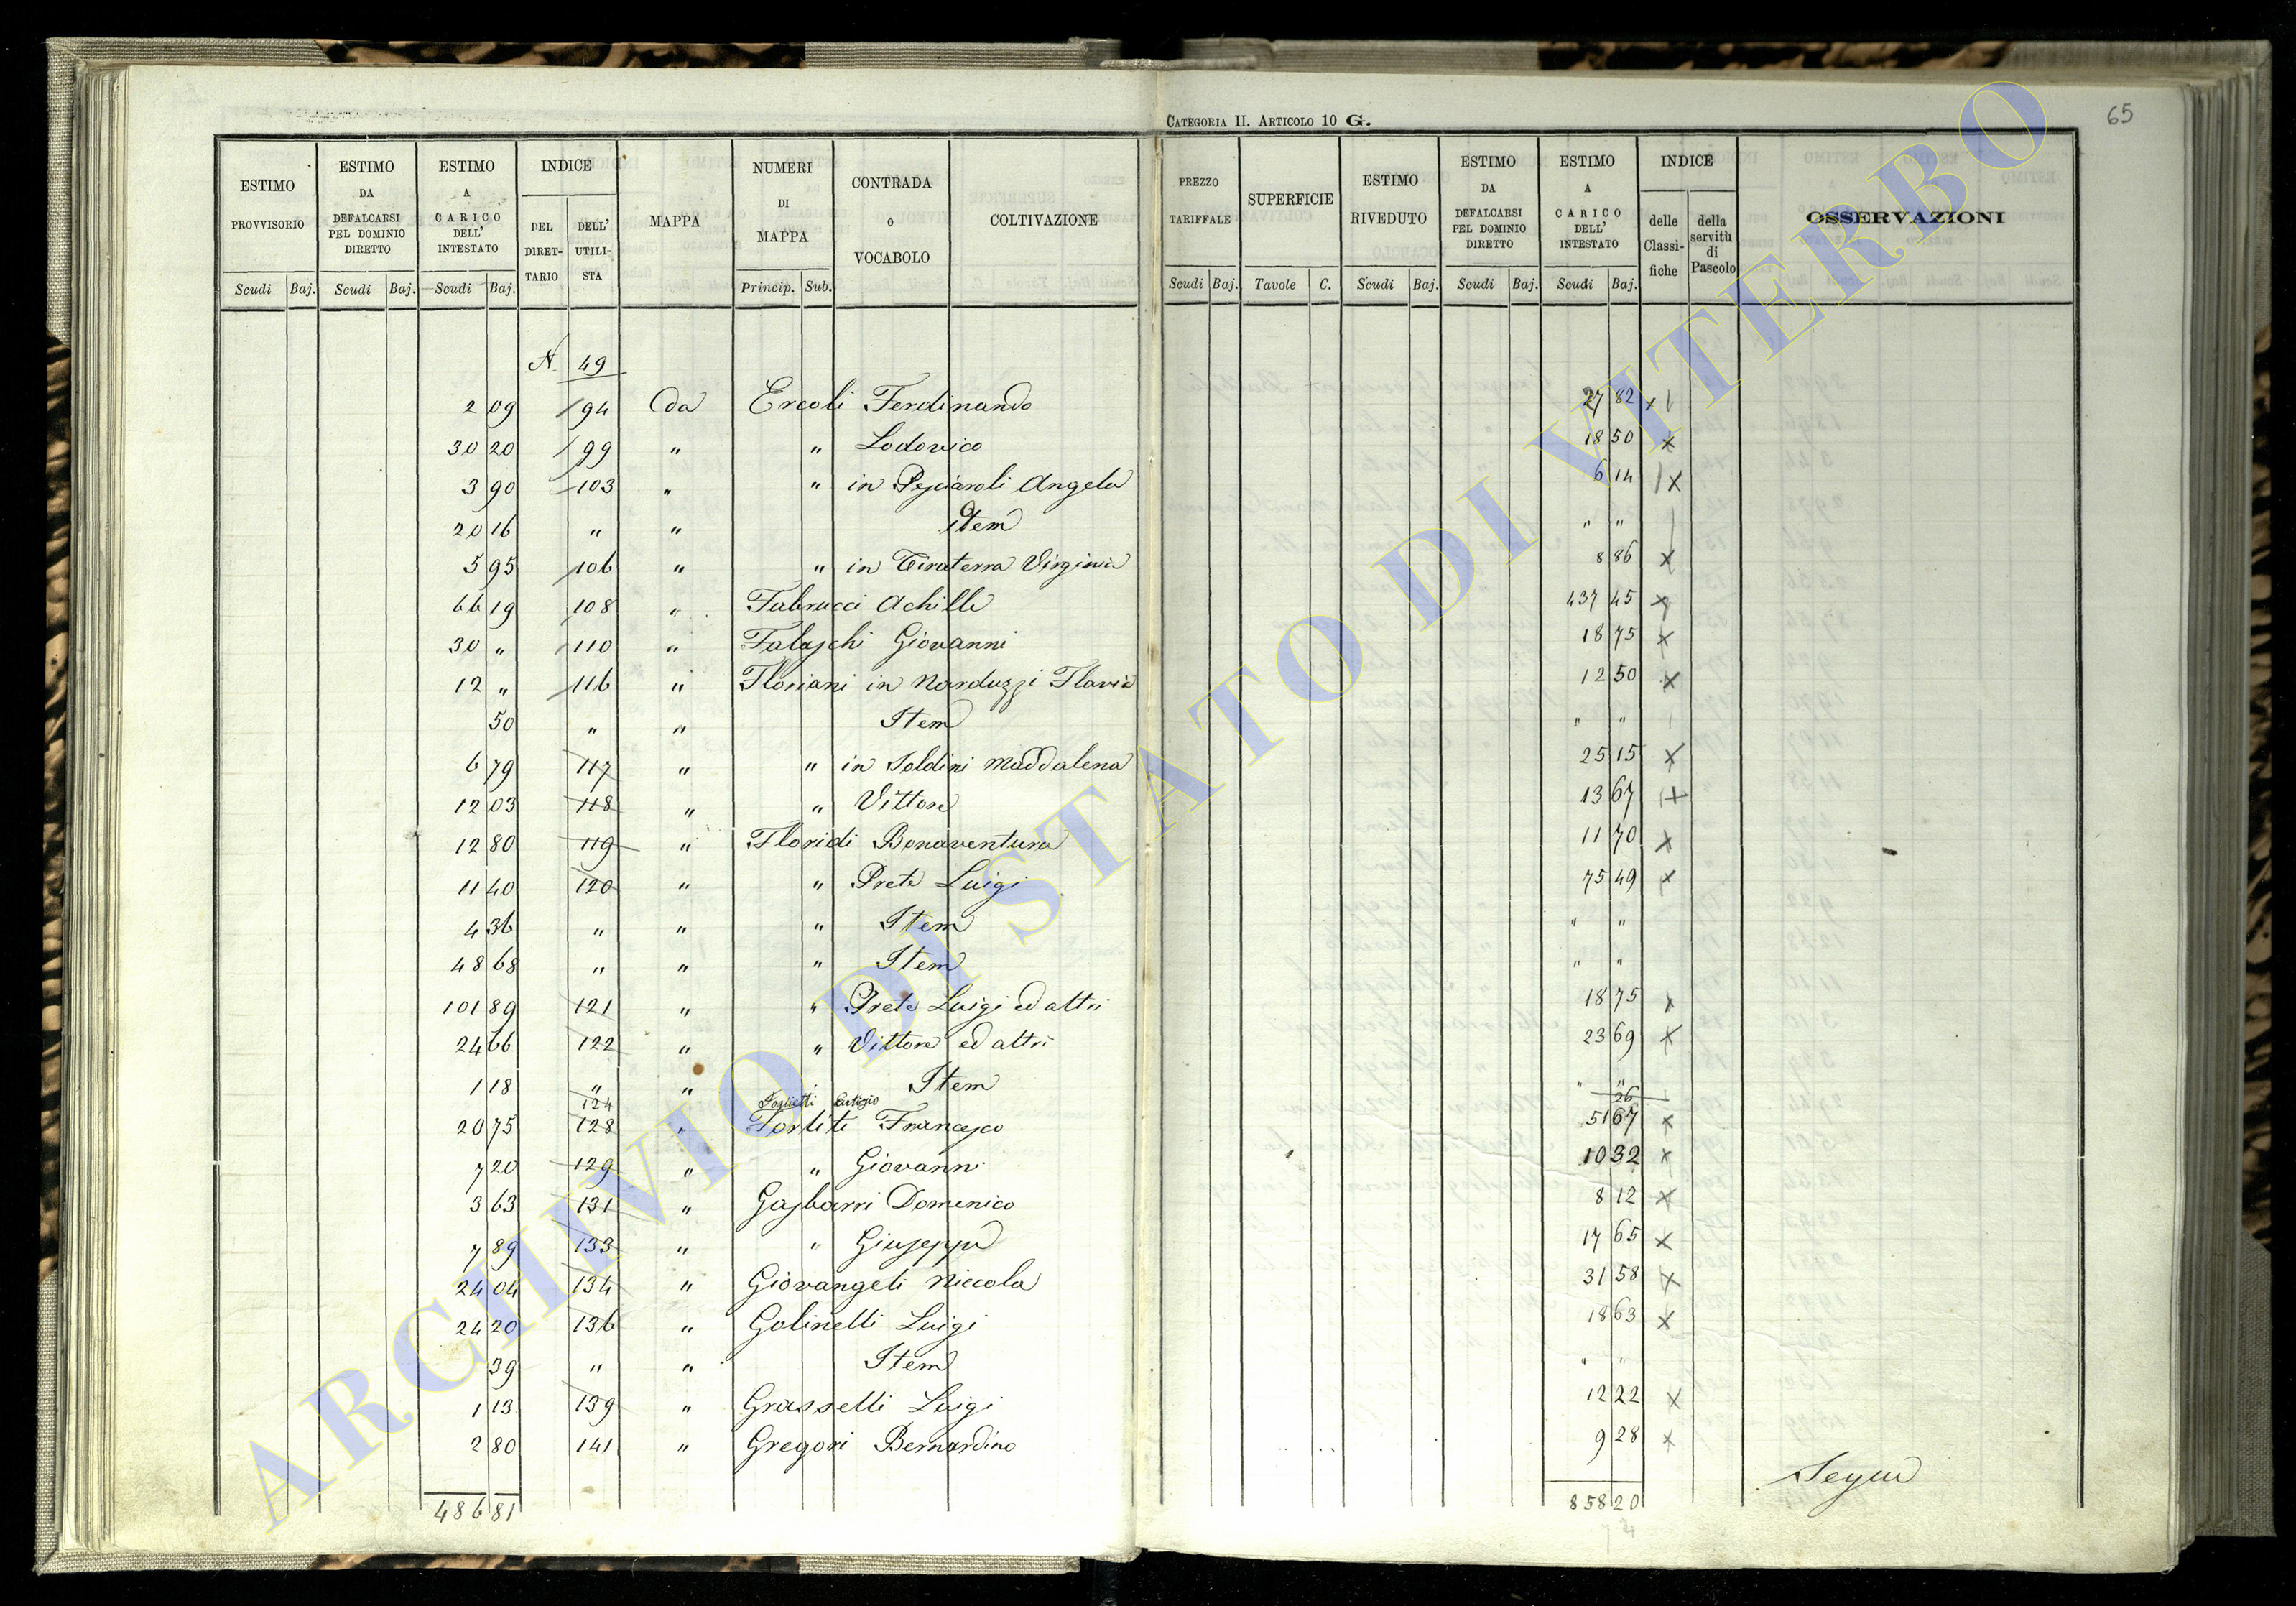 CATEGORIA II. ARTICOLO 10 G.
65
ESTIMO PROVVISORIO Scudi Baj.
ESTIMO DA DEFALCARSI PEL DOMINIO DIRETTO Scudi Baj.
ESTIMO A CARICO DELL' INTESTATO Scudi Baj.
INDICE DEL DIRETTARIO DELL' UTILISTA
MAPPA
NUMERI DI MAPPA Princip. Sub.
CONTRADA o VOCABOLO
COLTIVAZIONE
PREZZO TARIFFALE Scudi Baj.
SUPERFICIE Tavole C.
ESTIMO RIVEDUTO Scudi Baj.
ESTIMO DA DEFALCARSI PEL DOMINIO DIRETTO Scudi Baj.
ESTIMO A CARICO DELL' INTESTATO Scudi Baj.
INDICE delle Classifiche della servitù di Pascolo
OSSERVAZIONI
N. 49
2 09 94 Da Ercoli Ferdinando 27 82 x
30 20 99 " " Lodovico 18 50 x
3 90 103 " " in Pesciaroli Angela 6 14 x
20 16 " " item " "
5 95 106 " " in Tiraterra Virginia 8 86 x
66 19 108 " Fabrucci Achille 437 45 x
30 " 110 " Falaschi Giovanni 18 75 x
12 " 116 " Floriani in Narduzzi Flavia 12 50 x
50 " " Item " "
6 79 117 " " in Soldini Maddalena 25 15 x
12 03 118 " " Vittore 13 67 x
12 80 119 " Floridi Bonaventura 11 70 x
11 40 120 " " Prete Luigi 75 49 x
4 36 " " " Item " "
48 68 " " " Item " "
101 89 121 " " Prete Luigi ed altri 18 75 x
24 66 122 " " Vittore ed altri 23 69 x
1 18 " " Item " "
124 Eutizio 26
20 75 128 " Fortiti Francesco 51 67 x
7 20 129 " " Giovanni 10 32 x
3 63 131 " Gasbarri Domenico 8 12 x
7 89 133 " " Giuseppe 17 65 x
24 04 134 " Giovangeli Niccola 31 58 x
24 20 136 " Golinelli Luigi 18 63 x
39 " " Item " "
1 13 139 " Grasselli Luigi 12 22 x
2 80 141 " Gregori Bernardino 9 28 x
Segue
486 81 858 20
ARCHIVIO DI STATO DI VITERBO